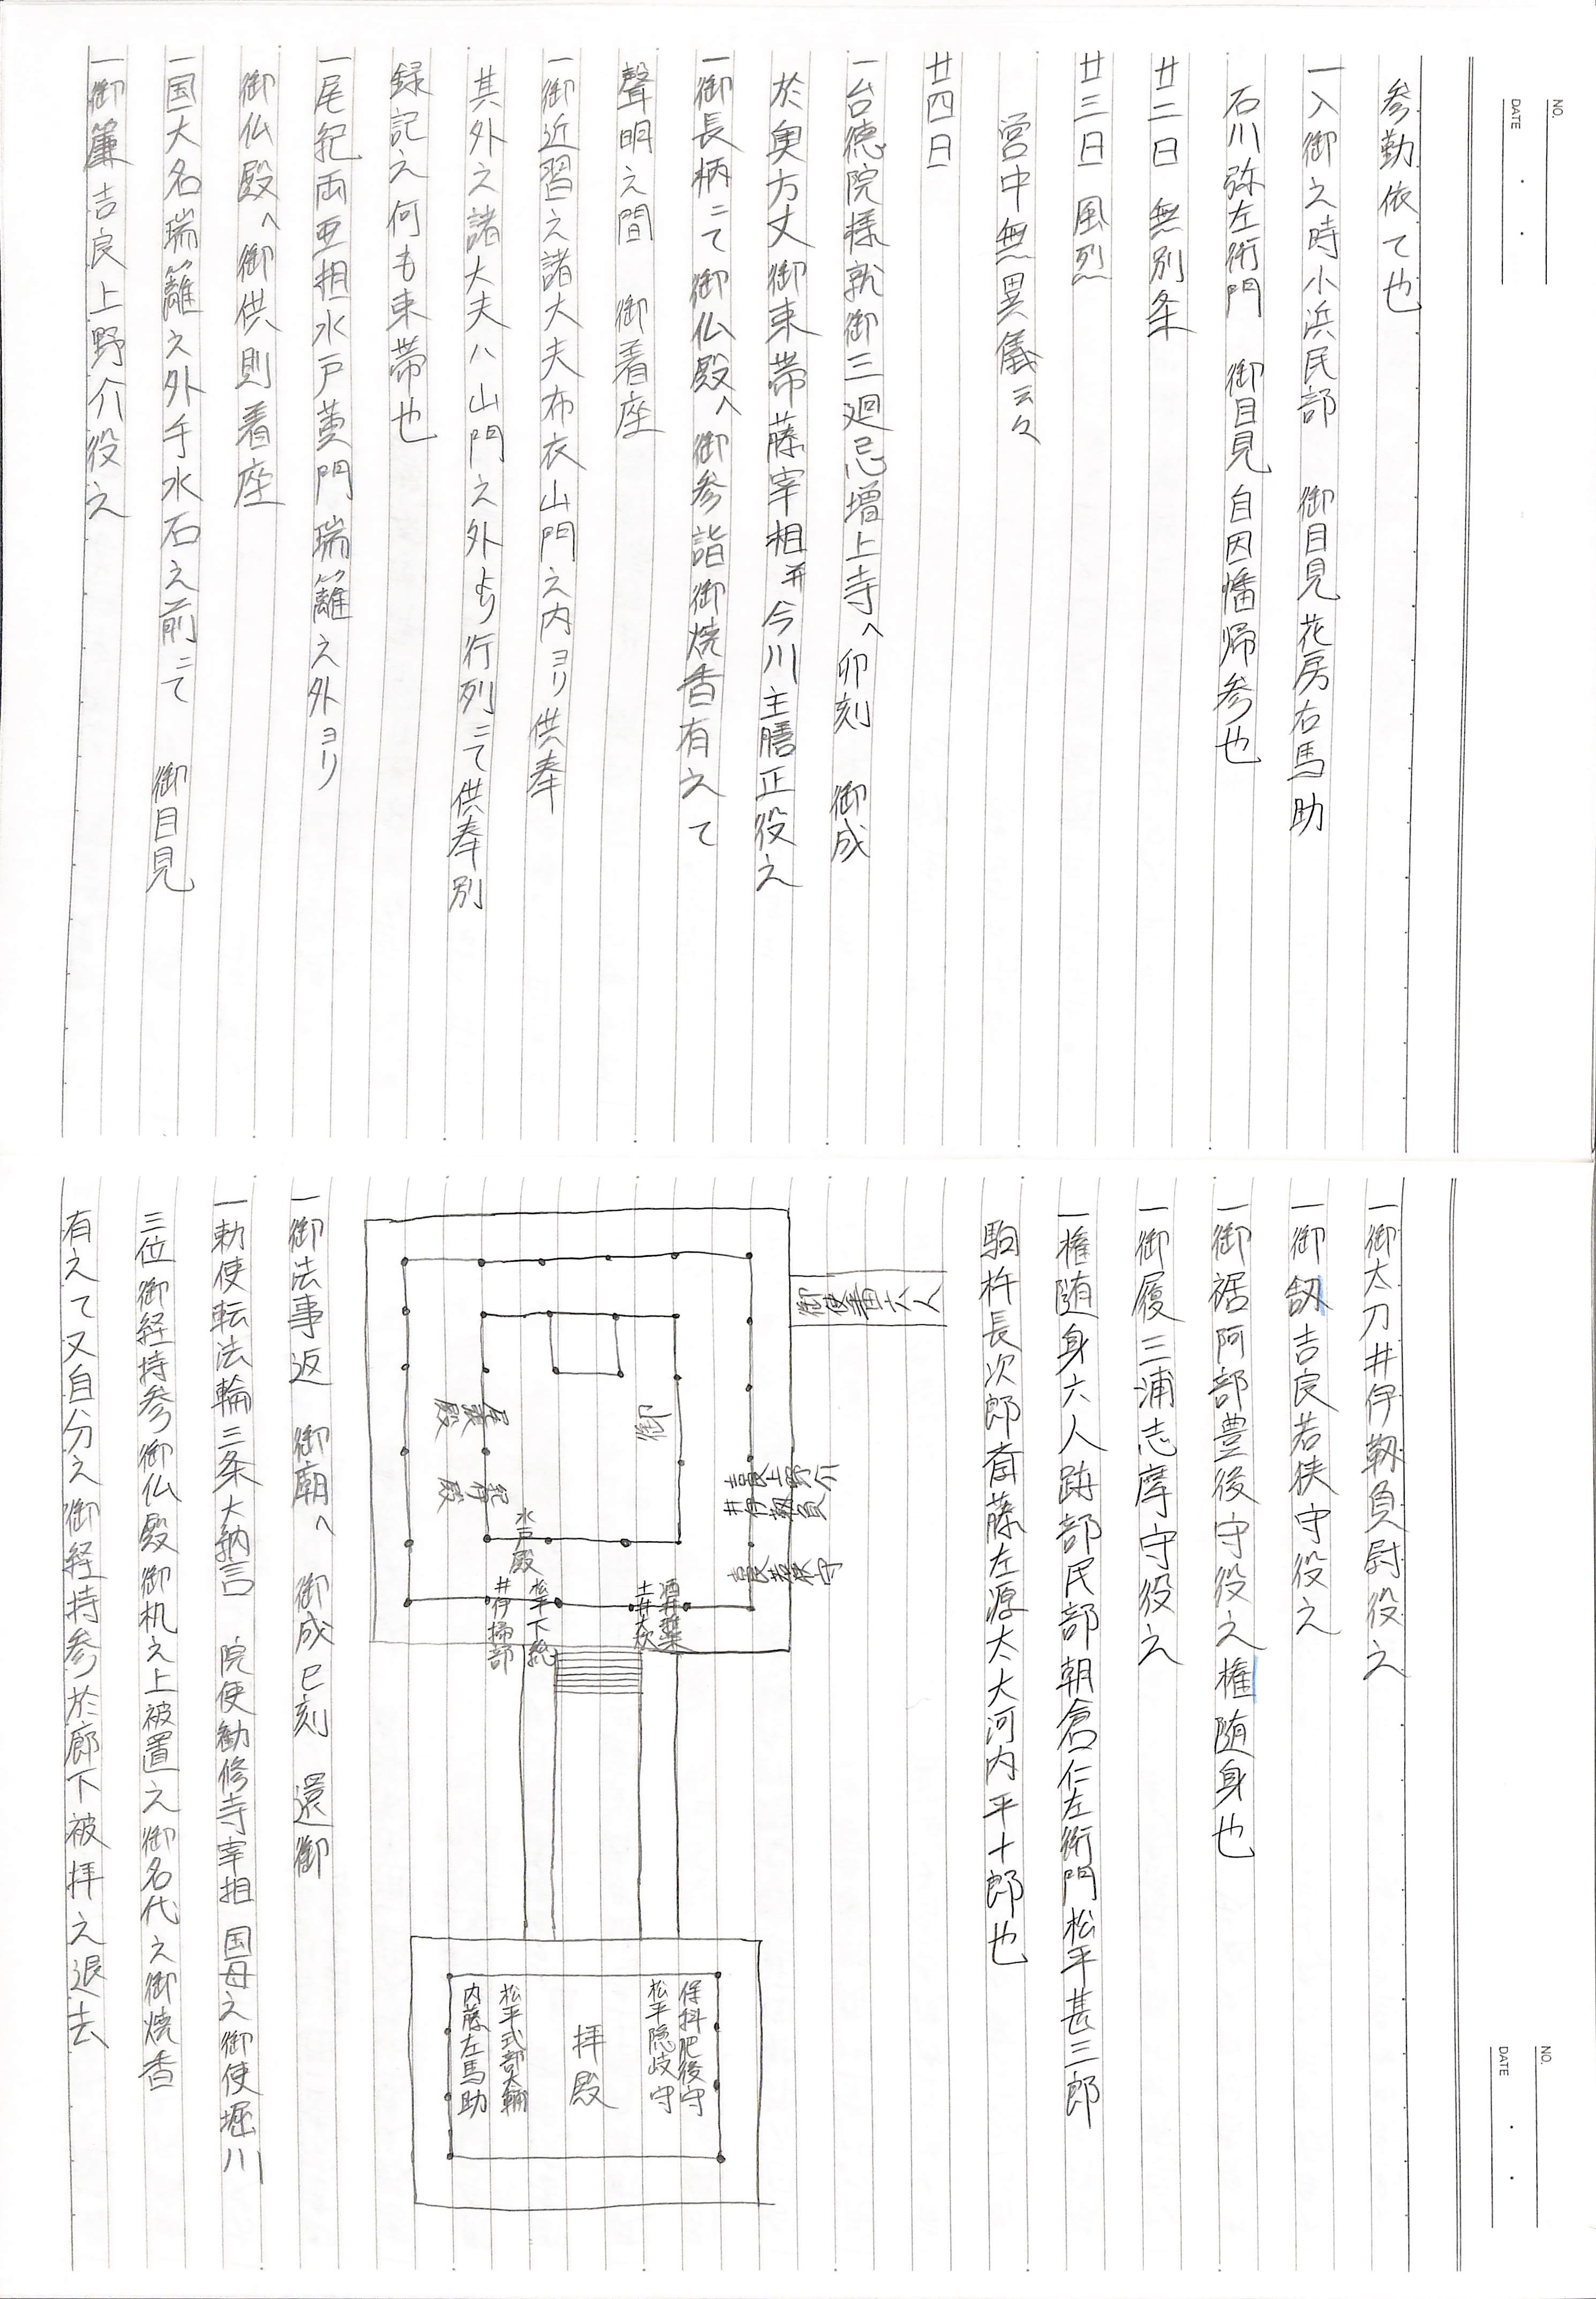 NO.
DATE
参勤依て也
一入御之時小浜民部　御目見花房右馬助
石川弥左衛門　御目見自因幡帰参也
廿二日　無別条
廿三日　風烈
営中無異儀云々
廿四日
一台徳院様就御三廻忌増上寺へ卯刻　御成
於奥方丈御束帯藤宰相并今川主膳正役之
一御長柄ニて御仏殿へ御参詣御焼香有之て
聲明之間　御着座
一御近習之諸大夫布衣山門之内ヨリ供奉
其外之諸大夫ハ山門之外より行列ニて供奉別
録記之何も束帯也
一尾紀両亜相水戸黄門瑞籬之外ヨリ
御仏殿へ御供則着座
一国大名瑞籬之外手水石之前ニて　御目見
一御簾吉良上野介役之
NO.
DATE
一御太刀井伊靱負尉役之
一御劔吉良若狭守役之
一御裾阿部豊後守役之権随身也
一御履三浦志摩守役之
一権随身六人跡部民部朝倉仁左衛門松平甚三郎
駒杵長次郎斎藤左源太大河内平十郎也
六人
御
尾張殿
紀伊殿
水戸殿
吉良上野介
井伊靱負
吉良若狭守
酒井雅楽
土井大炊
松平下総
井伊掃部
保科肥後守
松平隠岐守
拝殿
松平式部大輔
内藤左馬助
一御法事返　御廟へ　御成巳刻　還御
一勅使転法輪三条大納言　院使勧修寺宰相　国母之御使堀川
三位御経持参御仏殿御机之上被置之御名代之御焼香
有之て又自分之御経持参於廊下被拝之退去